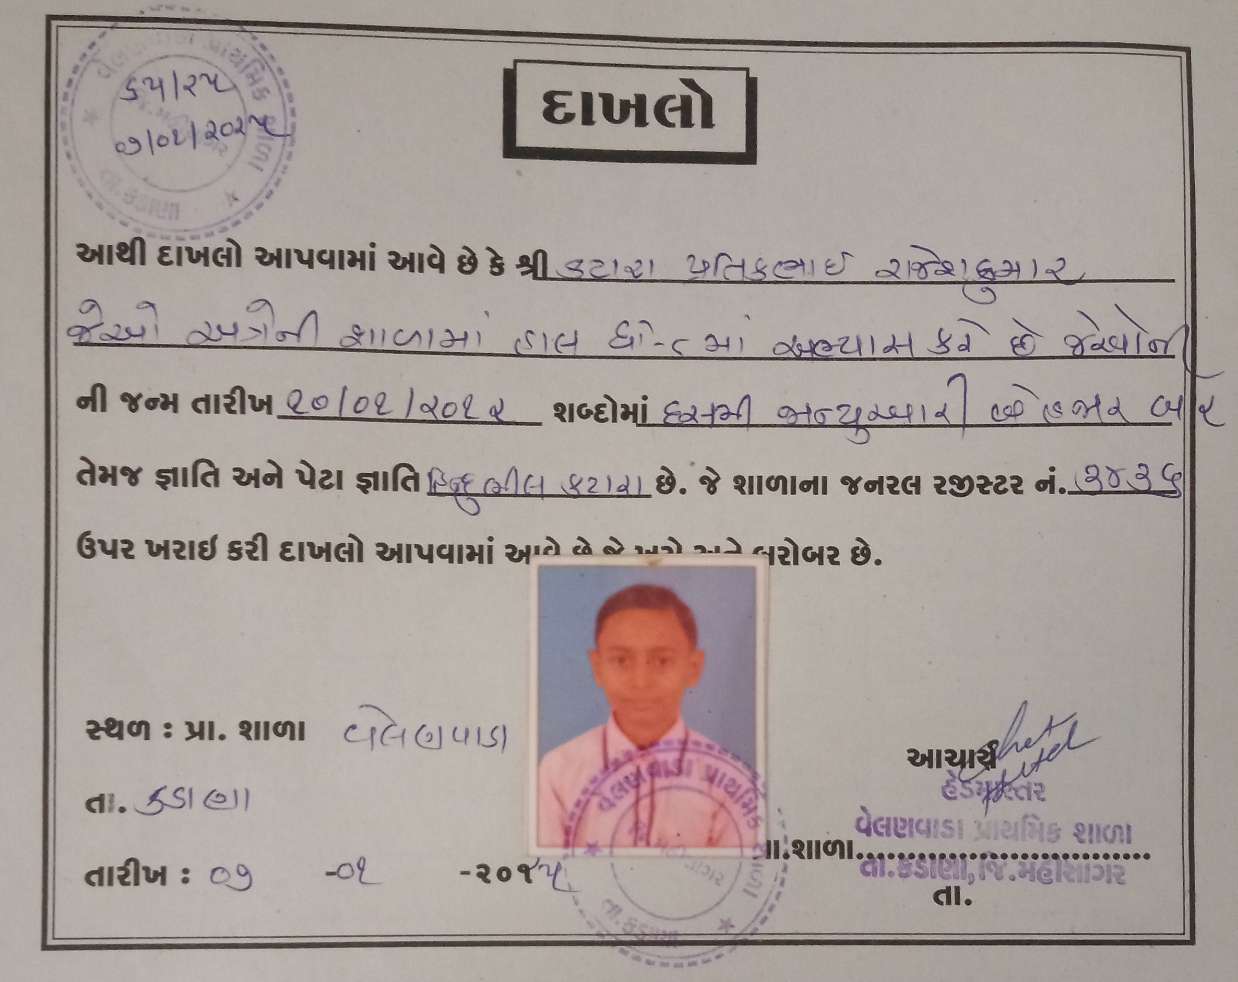 વેલણવાડા પ્રાથમિક શાળા
તા.કડાણા
૬૫/૨૫
૦૭/૦૧/૨૦૨૫
દાખલો
આથી દાખલો આપવામાં આવે છે કે શ્રી કટારા પ્રતિકભાઈ રાજેશકુમાર
જેઓ અત્રેની શાળામાં હાલ ધો-૮ માં અભ્યાસ કરે છે જેઓની
ની જન્મ તારીખ ૧૦/૦૧/૨૦૧૨ શબ્દોમાં દસમી જાન્યુઆરી બે હજાર બાર
તેમજ જ્ઞાતિ અને પેટા જ્ઞાતિ હિન્દુ ભીલ કટારા છે. જે શાળાના જનરલ રજીસ્ટર નં. ૩૪૩૬
ઉપર ખરાઇ કરી દાખલો આપવામાં આવે છે જે ખરો અને બરોબર છે.
સ્થળ : પ્રા. શાળા વેલણવાડા
આચાર્ય
હેડમાસ્તર
તા. કડાણા
વેલણવાડા પ્રાથમિક શાળા
પ્રા.શાળા..............................
તા.કડાણા, જિ.મહીસાગર
તારીખ : ૦૭ -૦૧ -૨૦૨૫
તા.
વેલણવાડા પ્રાથમિક શાળા
જિ. મહીસાગર
તા.કડાણા